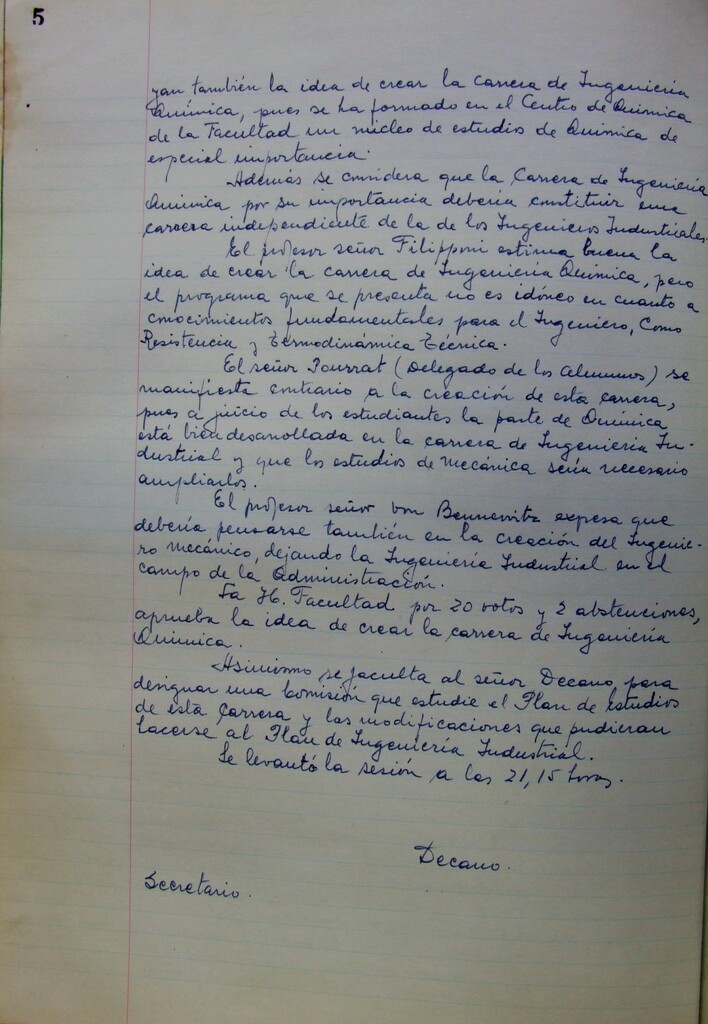 5
yan también la idea de crear la carrera de Ingeniería
Química, pues se ha formado en el Centro de Química
de la Facultad un núcleo de estudios de Química de
especial importancia.
Además se considera que la Carrera de Ingeniería
Química por su importancia debería constituir una
carrera independiente de la de los Ingenieros Industriales.
El profesor señor Filipponi estima buena la
idea de crear la carrera de Ingeniería Química, pero
el programa que se presenta no es idóneo en cuanto a
conocimientos fundamentales para el Ingeniero, como
Resistencia y Termodinámica Técnica.
El señor Pourrat (Delegado de los Alumnos) se
manifiesta contrario a la creación de esta carrera,
pues a juicio de los estudiantes la parte de Química
está bien desarrollada en la carrera de Ingeniería In-
dustrial y que los estudios de mecánica sería necesario
ampliarlos.
El profesor señor von Bennewitz expresa que
debería pensarse también en la creación del Ingenie-
ro mecánico, dejando la Ingeniería Industrial en el
campo de la Administración.
La H. Facultad por 20 votos y 2 abstenciones,
aprueba la idea de crear la carrera de Ingeniería
Química.
Asimismo se faculta al señor Decano para
designar una Comisión que estudie el Plan de Estudios
de esta Carrera y las modificaciones que pudieran
hacerse al Plan de Ingeniería Industrial.
Se levantó la sesión a las 21,15 horas.
Decano.
Secretario.